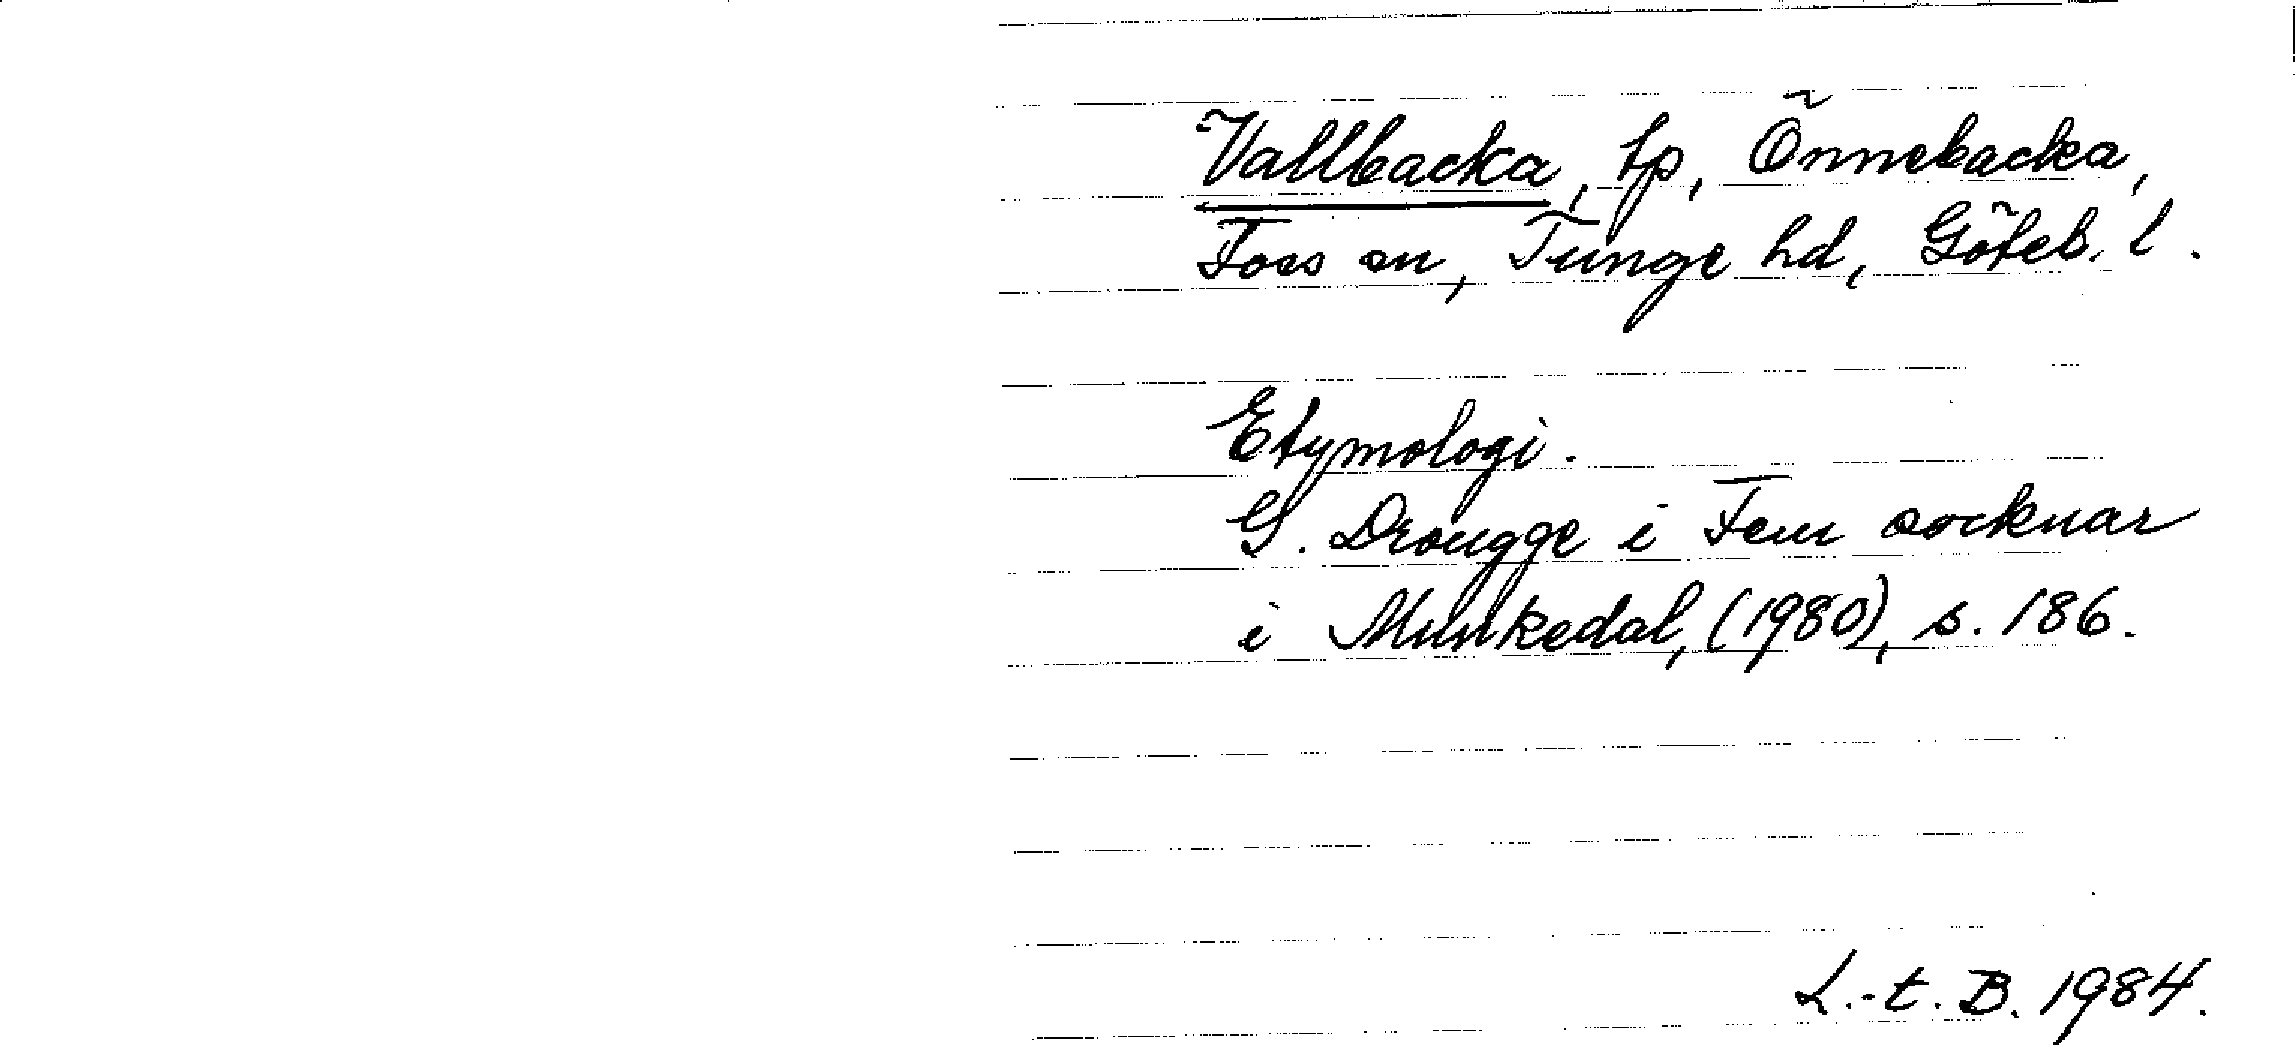 Vallbacka, tp, Önnebacka,
Foss sn, Tunge hd, Göteb. l.
Etymologi.
G. Drougge i Fem socknar
i Munkedal, (1980), s. 186.
L.-t. B. 1984.